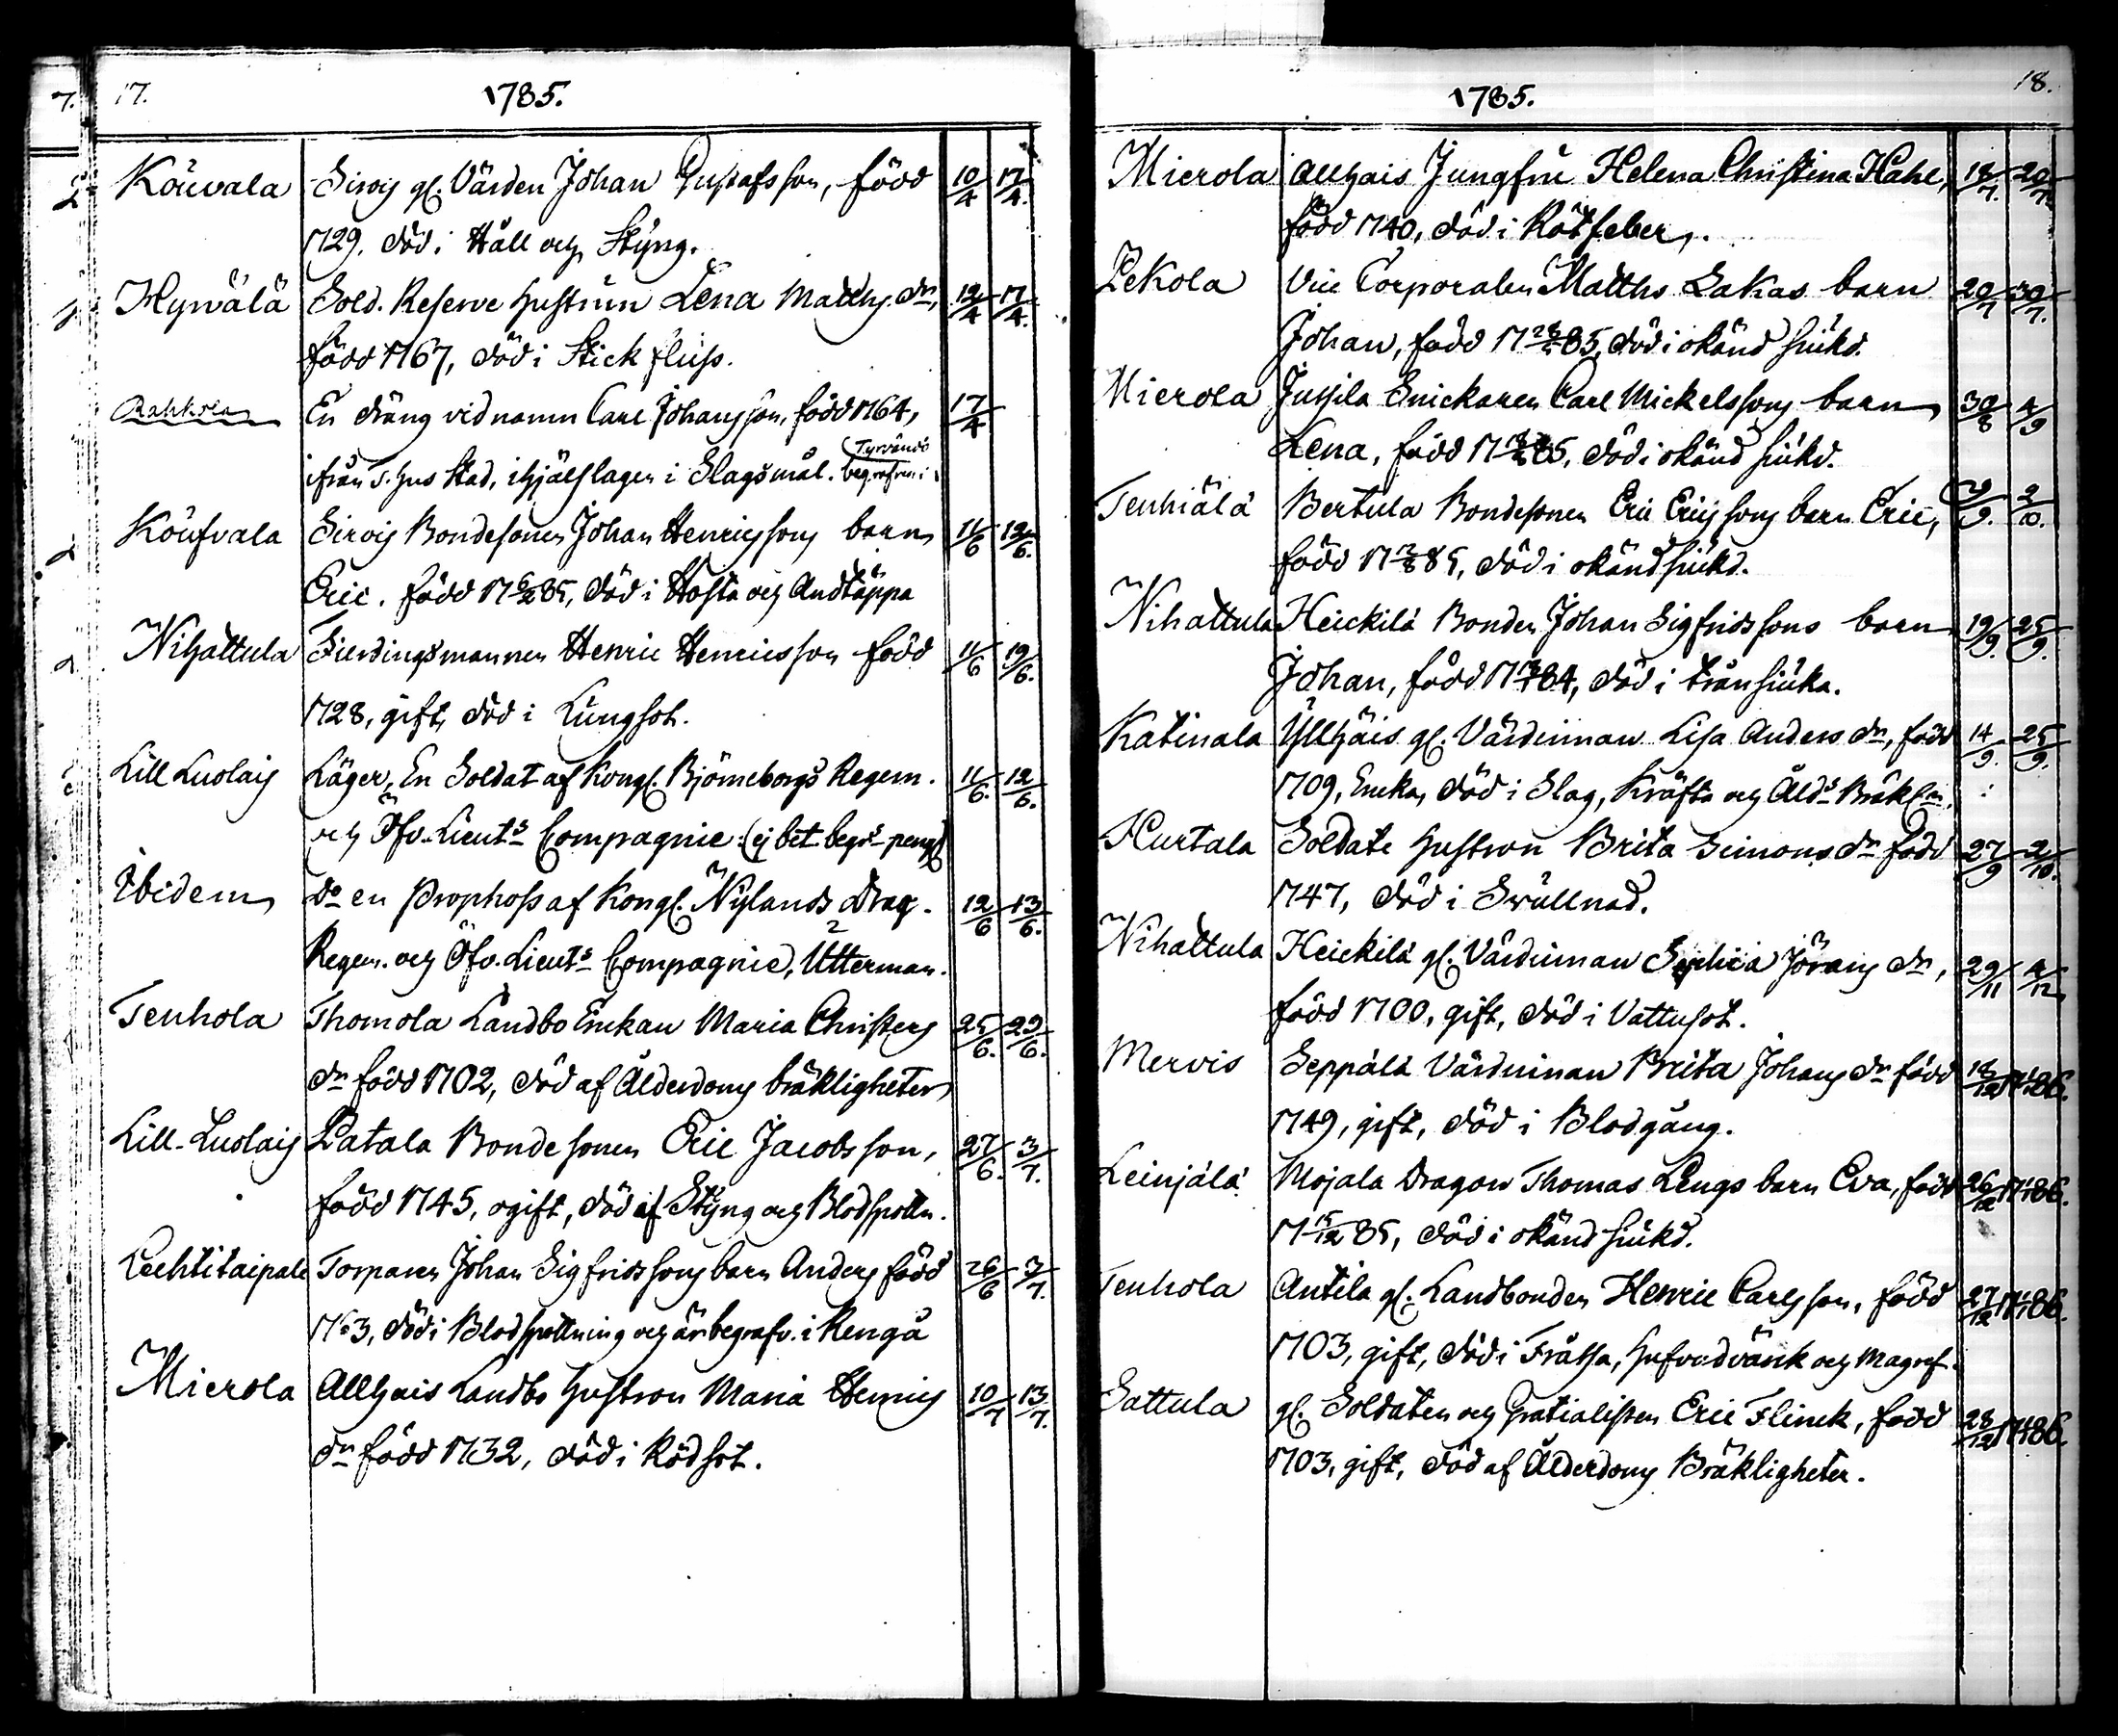 17.
1785.
Kouvala Sirois gl. Värden Johan Gustafsson, född 10/4 17/4.
1729, död i Håll och Styng.
Hyrvälä Sold. Reserve hustrun Lena Matths dr, 12/4 17/4.
född 1767, död i Stick fluss.
Rahkola En dräng vid namn Carl Johansson, född 1764, 17/4
ifrån T.hus Stad, ihjälslagen i Slagsmål. begrafven i Tyrvändö
Koufvala Sirois Bondesonen Johan Henricssons barn 11/6 12/6.
Eric. född 17 6/2 85, död i Hosta och Andtäppa
Nihattula Fierdingsmannen Henric Henricsson född 11/6 19/6.
1728, gift, död i Lungsot.
Lill Luolais Läger, En Soldat af Kongl. Björneborgs Regem. 11/6. 12/6.
och Öfv. Lieuts Compagnie. (ej bet. begrs peng)
Ibidem do en Prophoss af Kongl. Nylands Drag. 12/6 13/6.
Regem. och Öfv. Lieuts Compagnie, Utterman.
Tenhola Thomola Landbo Enkan Maria Christers 25/6. 29/6.
dr född 1702, död af Ålderdoms bräkligheter
Lill-Luolais Patala Bonde sonen Eric Jacobsson, 27/6. 3/7.
född 1745, ogift, död af Styng och Blodspottn.
Lechtitaipale Torparen Johan Sigfridssons barn Anders född 26/6 3/7.
1763, död i Blodspottning och är begrafv. i Rengå
Mierola Allhais Landbo hustron Maria Henrics 10/7 13/7.
dr född 1732, död i Rödsot.
18.
1785.
Mierola Allhais Jungfru Helena Christina Hahe, 18/7. 20/7.
född 1740, död i Rötfeber.
Pekola Vice Corporalen Matths Lakas barn 20/7 30/7.
Johan, född 17 85, död i okänd siukd.
Mierola Jussila Snickaren Carl Mickelssons barn 30/8 4/9
Lena, född 17 85, död i okänd siukd.
Tenhiälä Bertula Bondesonen Eric Ericssons barn Eric, 9. 2/10.
född 17 85, död i okänd siukd.
Nihattula Heickilä Bonden Johan Sigfridssons barn 19/9. 25/9.
Johan, född 17 84, död i tränsiuka.
Katinala Yllhäis gl. Värdinnan Lisa Anders dr, född 14/9. 25/9.
1709, Encka, död i Slag, Kräfta och Ålds Bräkl.
Hurtala Soldate hustron Brita Simons dr född 27/9 2/10.
1747, död i Svullnad.
Nihattula Heickilä gl. Värdinnan Sophia Jörans dr, 29/11 4/12
född 1700, gift, död i Vattusot.
Mervis Seppälä Värdinnan Brita Johans dr född 18/12 86.
1749, gift, död i Blodgång.
Leinjälä Mojala Dragon Thomas Lengs barn Eva, född 26/12 86.
17 15/12 85, död i okänd siukd.
Tenhola Antila gl. Landbonden Henric Carlsson, född 27/12 86.
1703, gift, död i Fråssa, hufvudvärk och Magref.
Sattula gl. Soldaten och Gratialisten Eric Flinck, född 28/12 86.
1703, gift, död af Ålderdoms Bräkligheter.